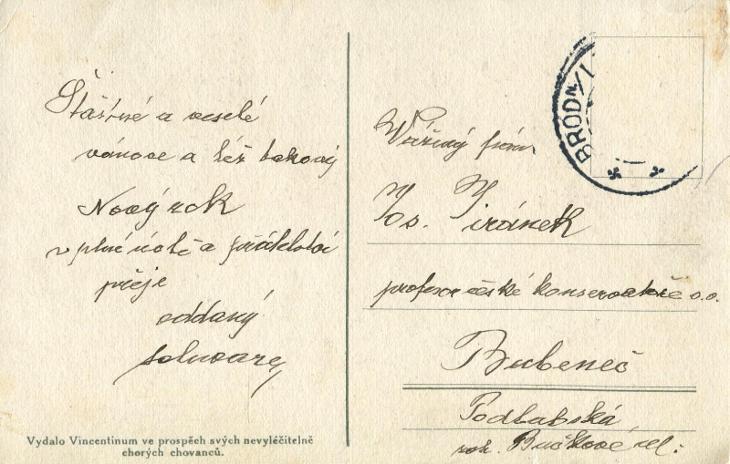 Šťastné a veselé
vánoce a též takový
Nový rok
v plné úctě a přátelství
přeje
oddaný
Vydalo Vincentinum ve prospěch svých nevyléčitelně
chorých chovanců.
BROD
Vážený pán
Jos. Jiránek
profesor české konservatoře v.v.
Bubeneč
Podbabská
roh. Bučkové ul: